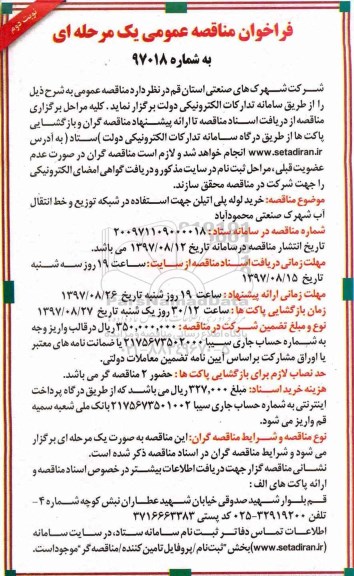 نوبت دوم
فراخوان مناقصه عمومی یک مرحله ای
به شماره ۹۷۰۱۸
شرکت شهرک های صنعتی استان قم در نظر دارد مناقصه عمومی به شرح ذیل
را از طریق سامانه تدارکات الکترونیکی دولت برگزار نماید . کلیه مراحل برگزاری
مناقصه از دریافت اسناد مناقصه تا ارائه پیشنهاد مناقصه گران و بازگشایی
پاکت ها از طریق درگاه سامانه تدارکات الکترونیکی دولت )ستاد( به آدرس
www.setadiran.ir انجام خواهد شد و لازم است مناقصه گران در صورت عدم
عضویت قبلی، مراحل ثبت نام در سایت مذکور و دریافت گواهی امضای الکترونیکی
را جهت شرکت در مناقصه محقق سازند.
موضوع مناقصه: خرید لوله پلی اتیلن جهت استفاده در شبکه توزیع و خط انتقال
آب شهرک صنعتی محمودآباد
شماره مناقصه در سامانه ستاد : ۲۰۰۹۷۱۱۰۹۰۰۰۰۱۸
تاریخ انتشار مناقصه در سامانه تاریخ ۱۳۹۷/۰۸/۱۲ می باشد.
مهلت زمانی دریافت اسناد مناقصه از سایت : ساعت ۱۹ روز سه شنبه
تاریخ ۱۳۹۷/۰۸/۱۵
مهلت زمانی ارائه پیشنهاد : ساعت ۱۹ روز شنبه تاریخ ۱۳۹۷/۰۸/۲۶
زمان بازگشایی پاکت ها : ساعت ۱۲/۳۰ روز یک شنبه تاریخ ۱۳۹۷/۰۸/۲۷
نوع و مبلغ تضمین شرکت در مناقصه : ۳۵۰,۰۰۰,۰۰۰ ریال در قالب واریز وجه
به شماره حساب جاری سیبا ۲۱۷۵۶۷۳۵۰۲۰۰۰ یا ضمانت نامه های معتبر
یا اوراق مشارکت بر اساس آیین نامه تضمین معاملات دولتی.
حد نصاب لازم برای بازگشایی پاکت ها : حضور ۲ مناقصه گر می باشد.
هزینه خرید اسناد: مبلغ ۳۲۷,۰۰۰ ریال می باشد که از طریق درگاه پرداخت
اینترنتی به شماره حساب جاری سیبا ۲۱۷۵۶۷۳۵۰۱۰۰۲ بانک ملی شعبه سمیه
قم واریز می شود.
نوع مناقصه و شرایط مناقصه گران: این مناقصه به صورت یک مرحله ای برگزار
می شود و شرایط مناقصه گران در اسناد مناقصه ذکر شده است.
نشانی مناقصه گزار جهت دریافت اطلاعات بیشتر در خصوص اسناد مناقصه و
ارائه پاکت های الف :
قم بلوار شهید صدوقی خیابان شهید عطاران نبش کوچه شماره ۴-
تلفن ۳۲۹۱۹۲۰۰-۰۲۵ کد پستی ۳۷۱۶۶۶۳۳۸۳
اطلاعات تماس دفاتر ثبت نام سامانه ستاد، در سایت سامانه
(www.setadiran.ir) بخش "ثبت نام / پروفایل تامین کننده/مناقصه گر" موجود است.